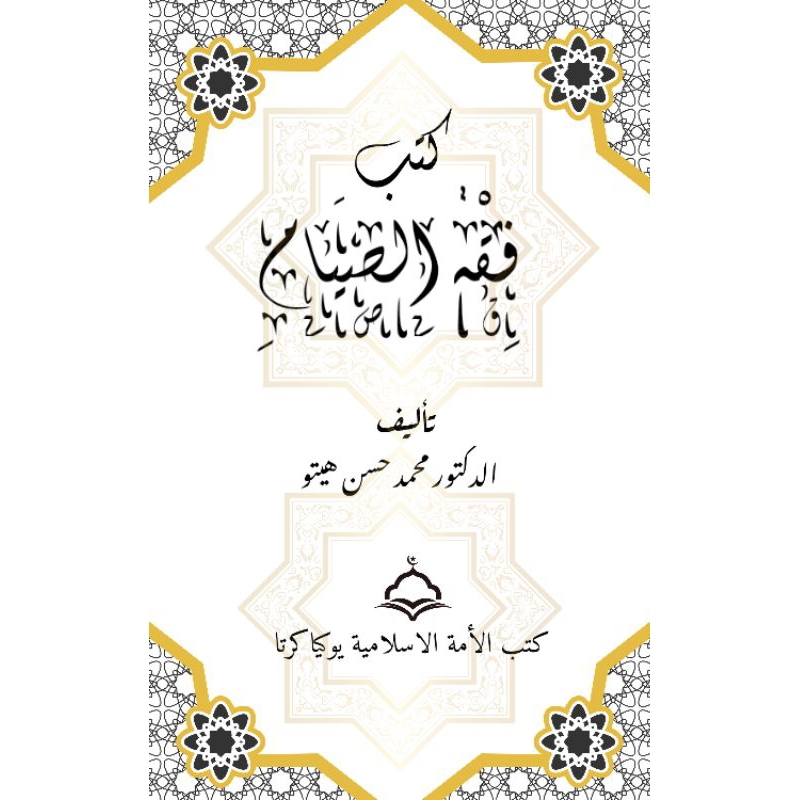 كتب
فِقْهُ الصِّيَامِ
تأليف
الدكتور محمد حسن هيتو
كتب الأمة الاسلامية يوكياكرتا